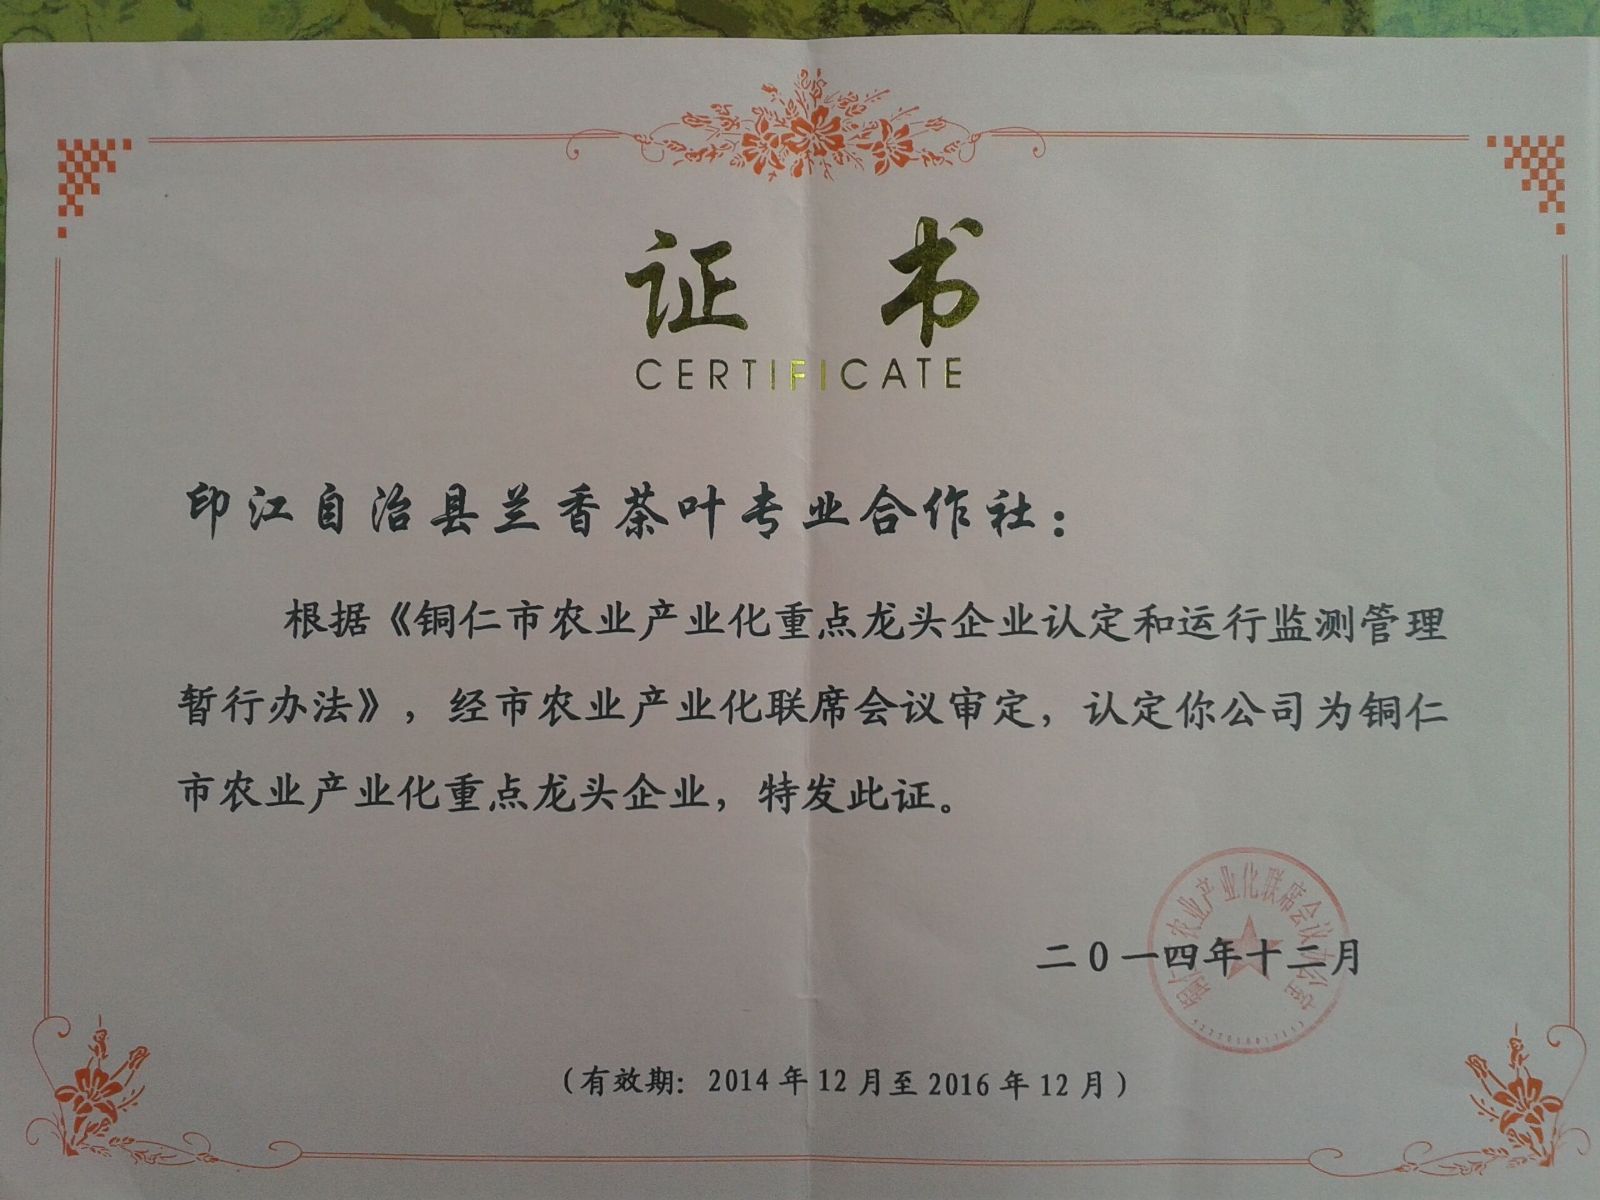 证 书
CERTIFICATE
印江自治县兰香茶叶专业合作社：
根据《铜仁市农业产业化重点龙头企业认定和运行监测管理
暂行办法》，经市农业产业化联席会议审定，认定你公司为铜仁
市农业产业化重点龙头企业，特发此证。
农业产业化联席会议
二0一四年十二月
（有效期：2014年12月至2016年12月）